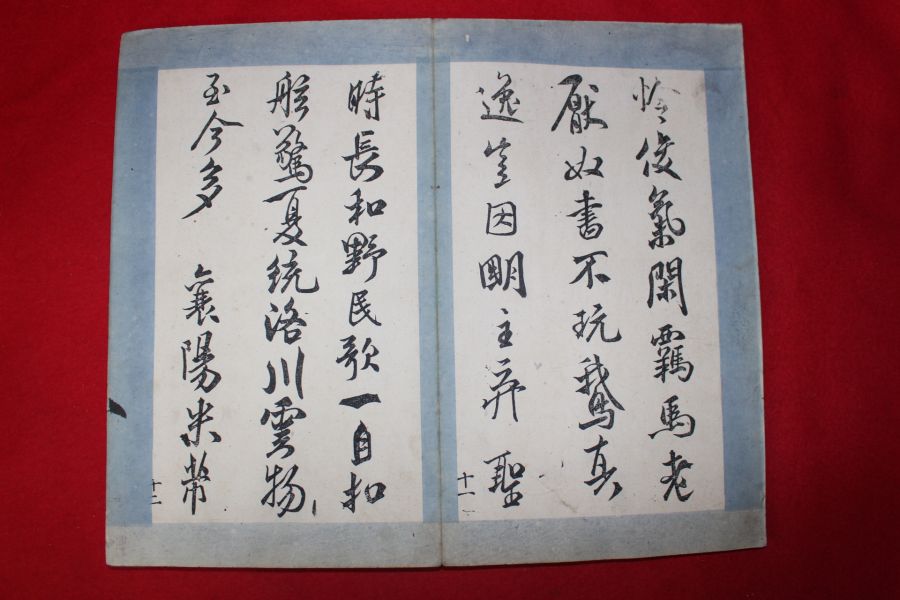 怜俊氣閑羈馬老
厭奴書不玩鵝真
逸豈因明主弃 聖
十一
時長和野民歌一自扣
舷驚夏統洛川雲物
至今多 襄陽米黻
十二